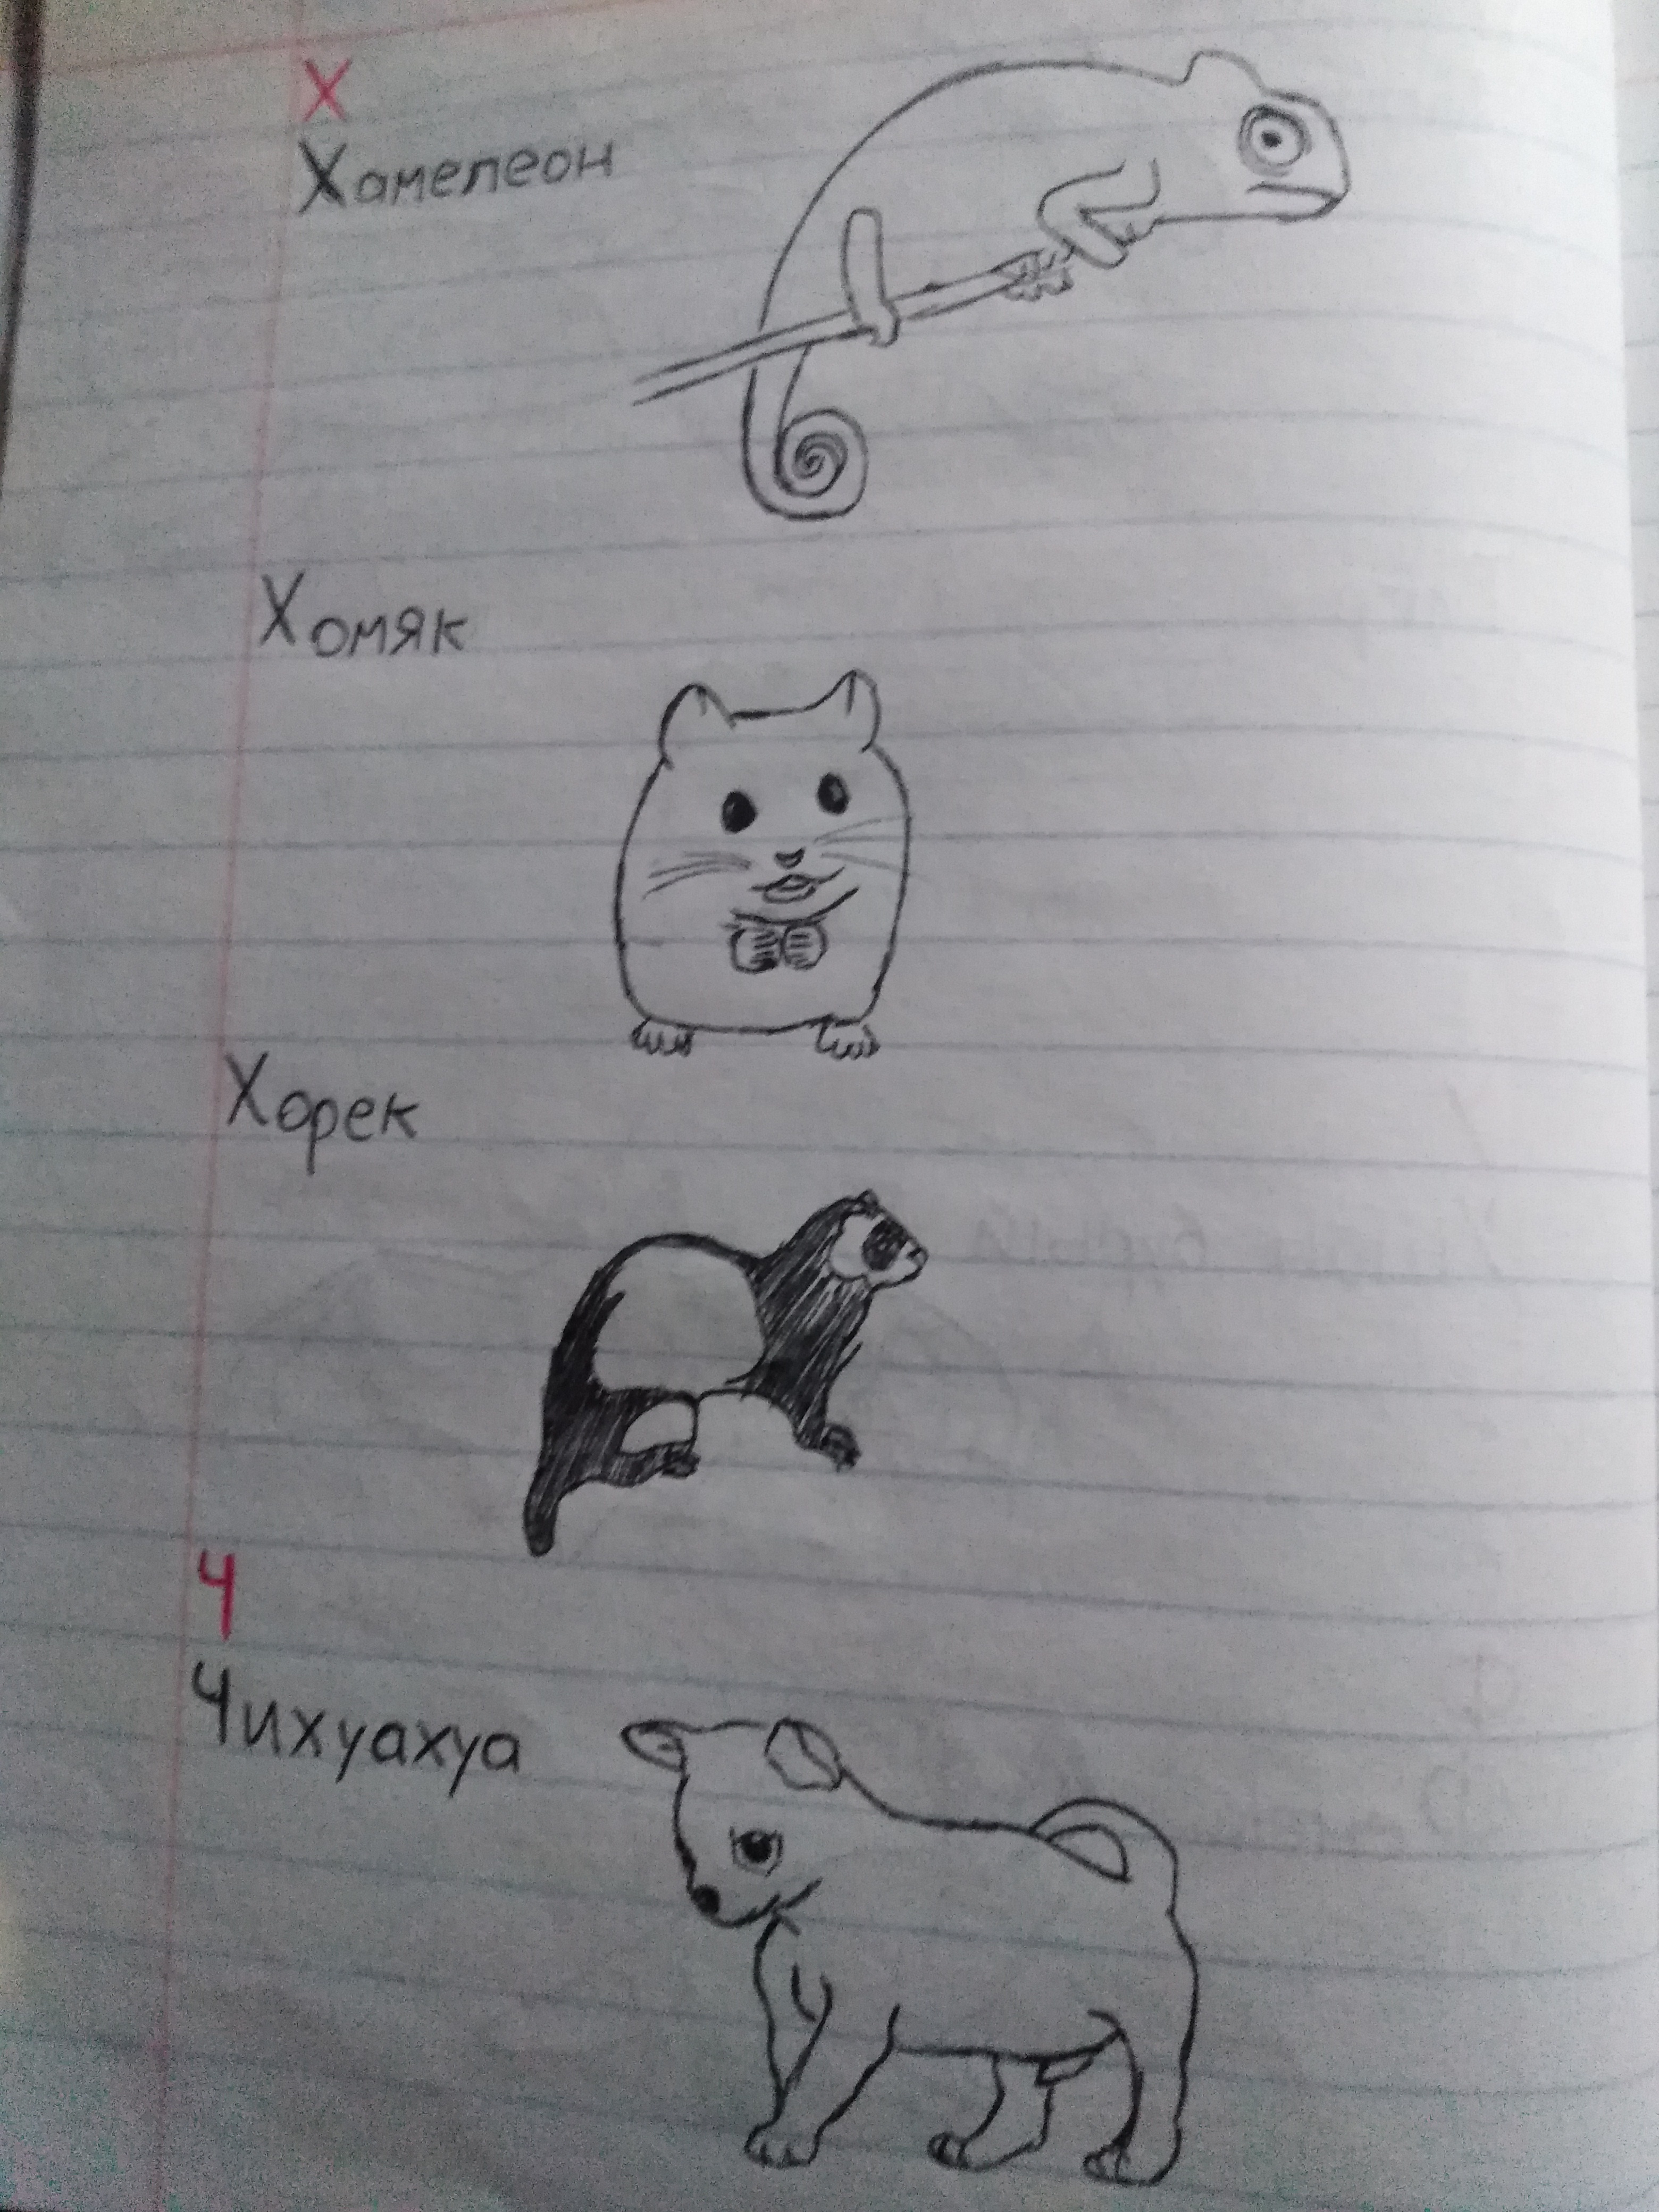 Х
Хамелеон
Хомяк
Хорек
Ч
Чихуахуа